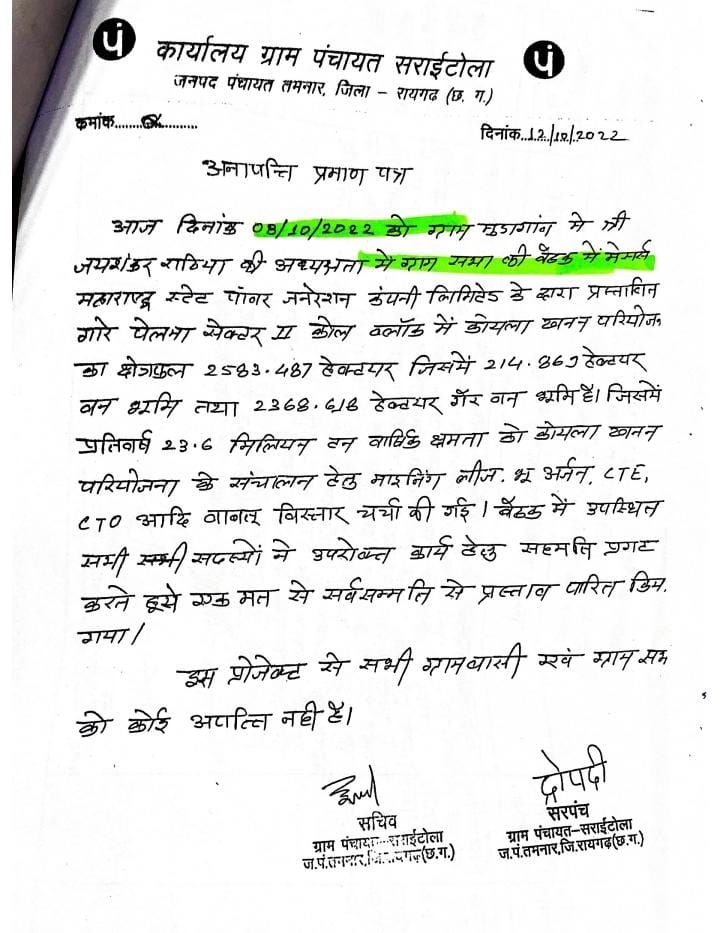 पं
पं
कार्यालय ग्राम पंचायत सराईटोला
जनपद पंचायत तमनार, जिला – रायगढ़ (छ. ग.)
कमांक..................
दिनांक..12/10/2022
अनापत्ति प्रमाण पत्र
आज दिनांक 08/10/2022 को ग्राम मुडागांव मे श्री
जयशंकर राठिया की अध्यक्षता मे ग्राम सभा की बैठक में मेसर्स
महाराष्ट्र स्टेट पॉवर जनरेशन कंपनी लिमिटेड के द्वारा प्रस्तावित
गारे पेलमा सेक्टर II कोल ब्लॉक में कोयला खनन परियोजन
का क्षेत्रफल 2583.487 हेक्टयर जिसमें 214.869 हेक्टयर
वन भूमि तथा 2368.618 हेक्टयर गैर वन भूमि है। जिसमें
प्रतिवर्ष 23.6 मिलियन टन वार्षिक क्षमता को कोयला खनन
परियोजना के संचालन हेतु माइनिंग लीज, भू अर्जन, CTE,
CTO आदि बाबत् विस्तार चर्चा की गई। बैठक में उपस्थित
सभी सभी सदस्यों ने उपरोक्त कार्य हेतु सहमति प्रगट
करते हुये एक मत से सर्वसम्मति से प्रस्ताव पारित किय
गया।
इस प्रोजेक्ट से सभी ग्रामवासी एवं ग्राम सभ
को कोई अपत्ति नही है।
द्रोपदी
सचिव
ग्राम पंचायत-सराईटोला
ज.पं.तमनार,जि.रायगढ़(छ.ग.)
सरपंच
ग्राम पंचायत–सराईटोला
ज.पं.तमनार,जि.रायगढ़(छ.ग.)